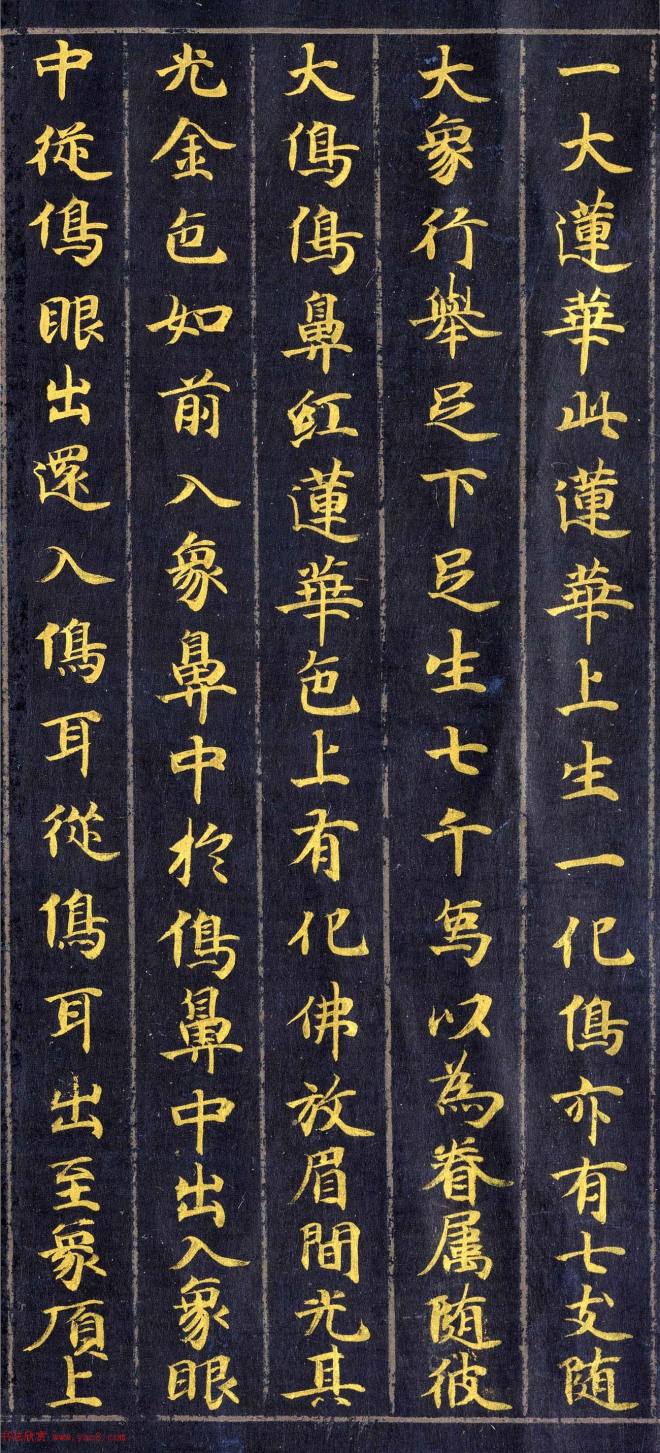 一大蓮華此蓮華上生一化𫠉亦有七支随
大象行舉足下足生七千𫠉以為眷属随彼
大𫠉𫠉鼻紅蓮華色上有化佛放眉間光其
光金色如前入象鼻中於𫠉鼻中出入象眼
中從𫠉眼出還入𫠉耳從𫠉耳出至象頂上
书法欣赏 www.yac8.com